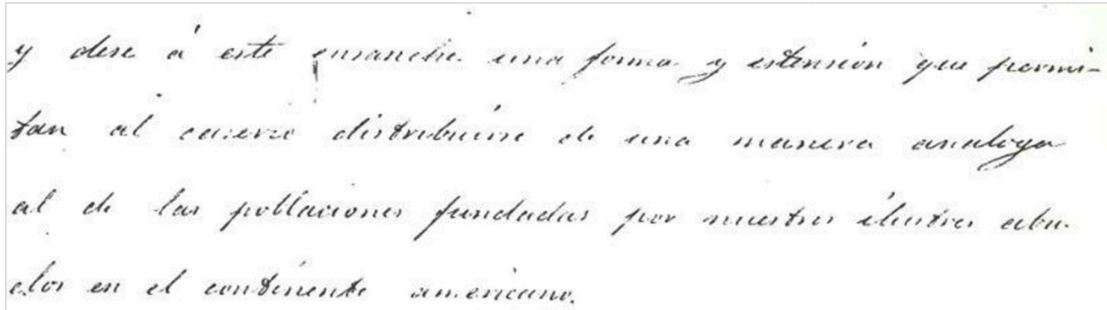 y dese á este ensanche una forma y estensión que permi-
tan al caserio distribuirse de una manera analoga
al de las poblaciones fundadas por nuestros ilustres abu-
elos en el continente americano.